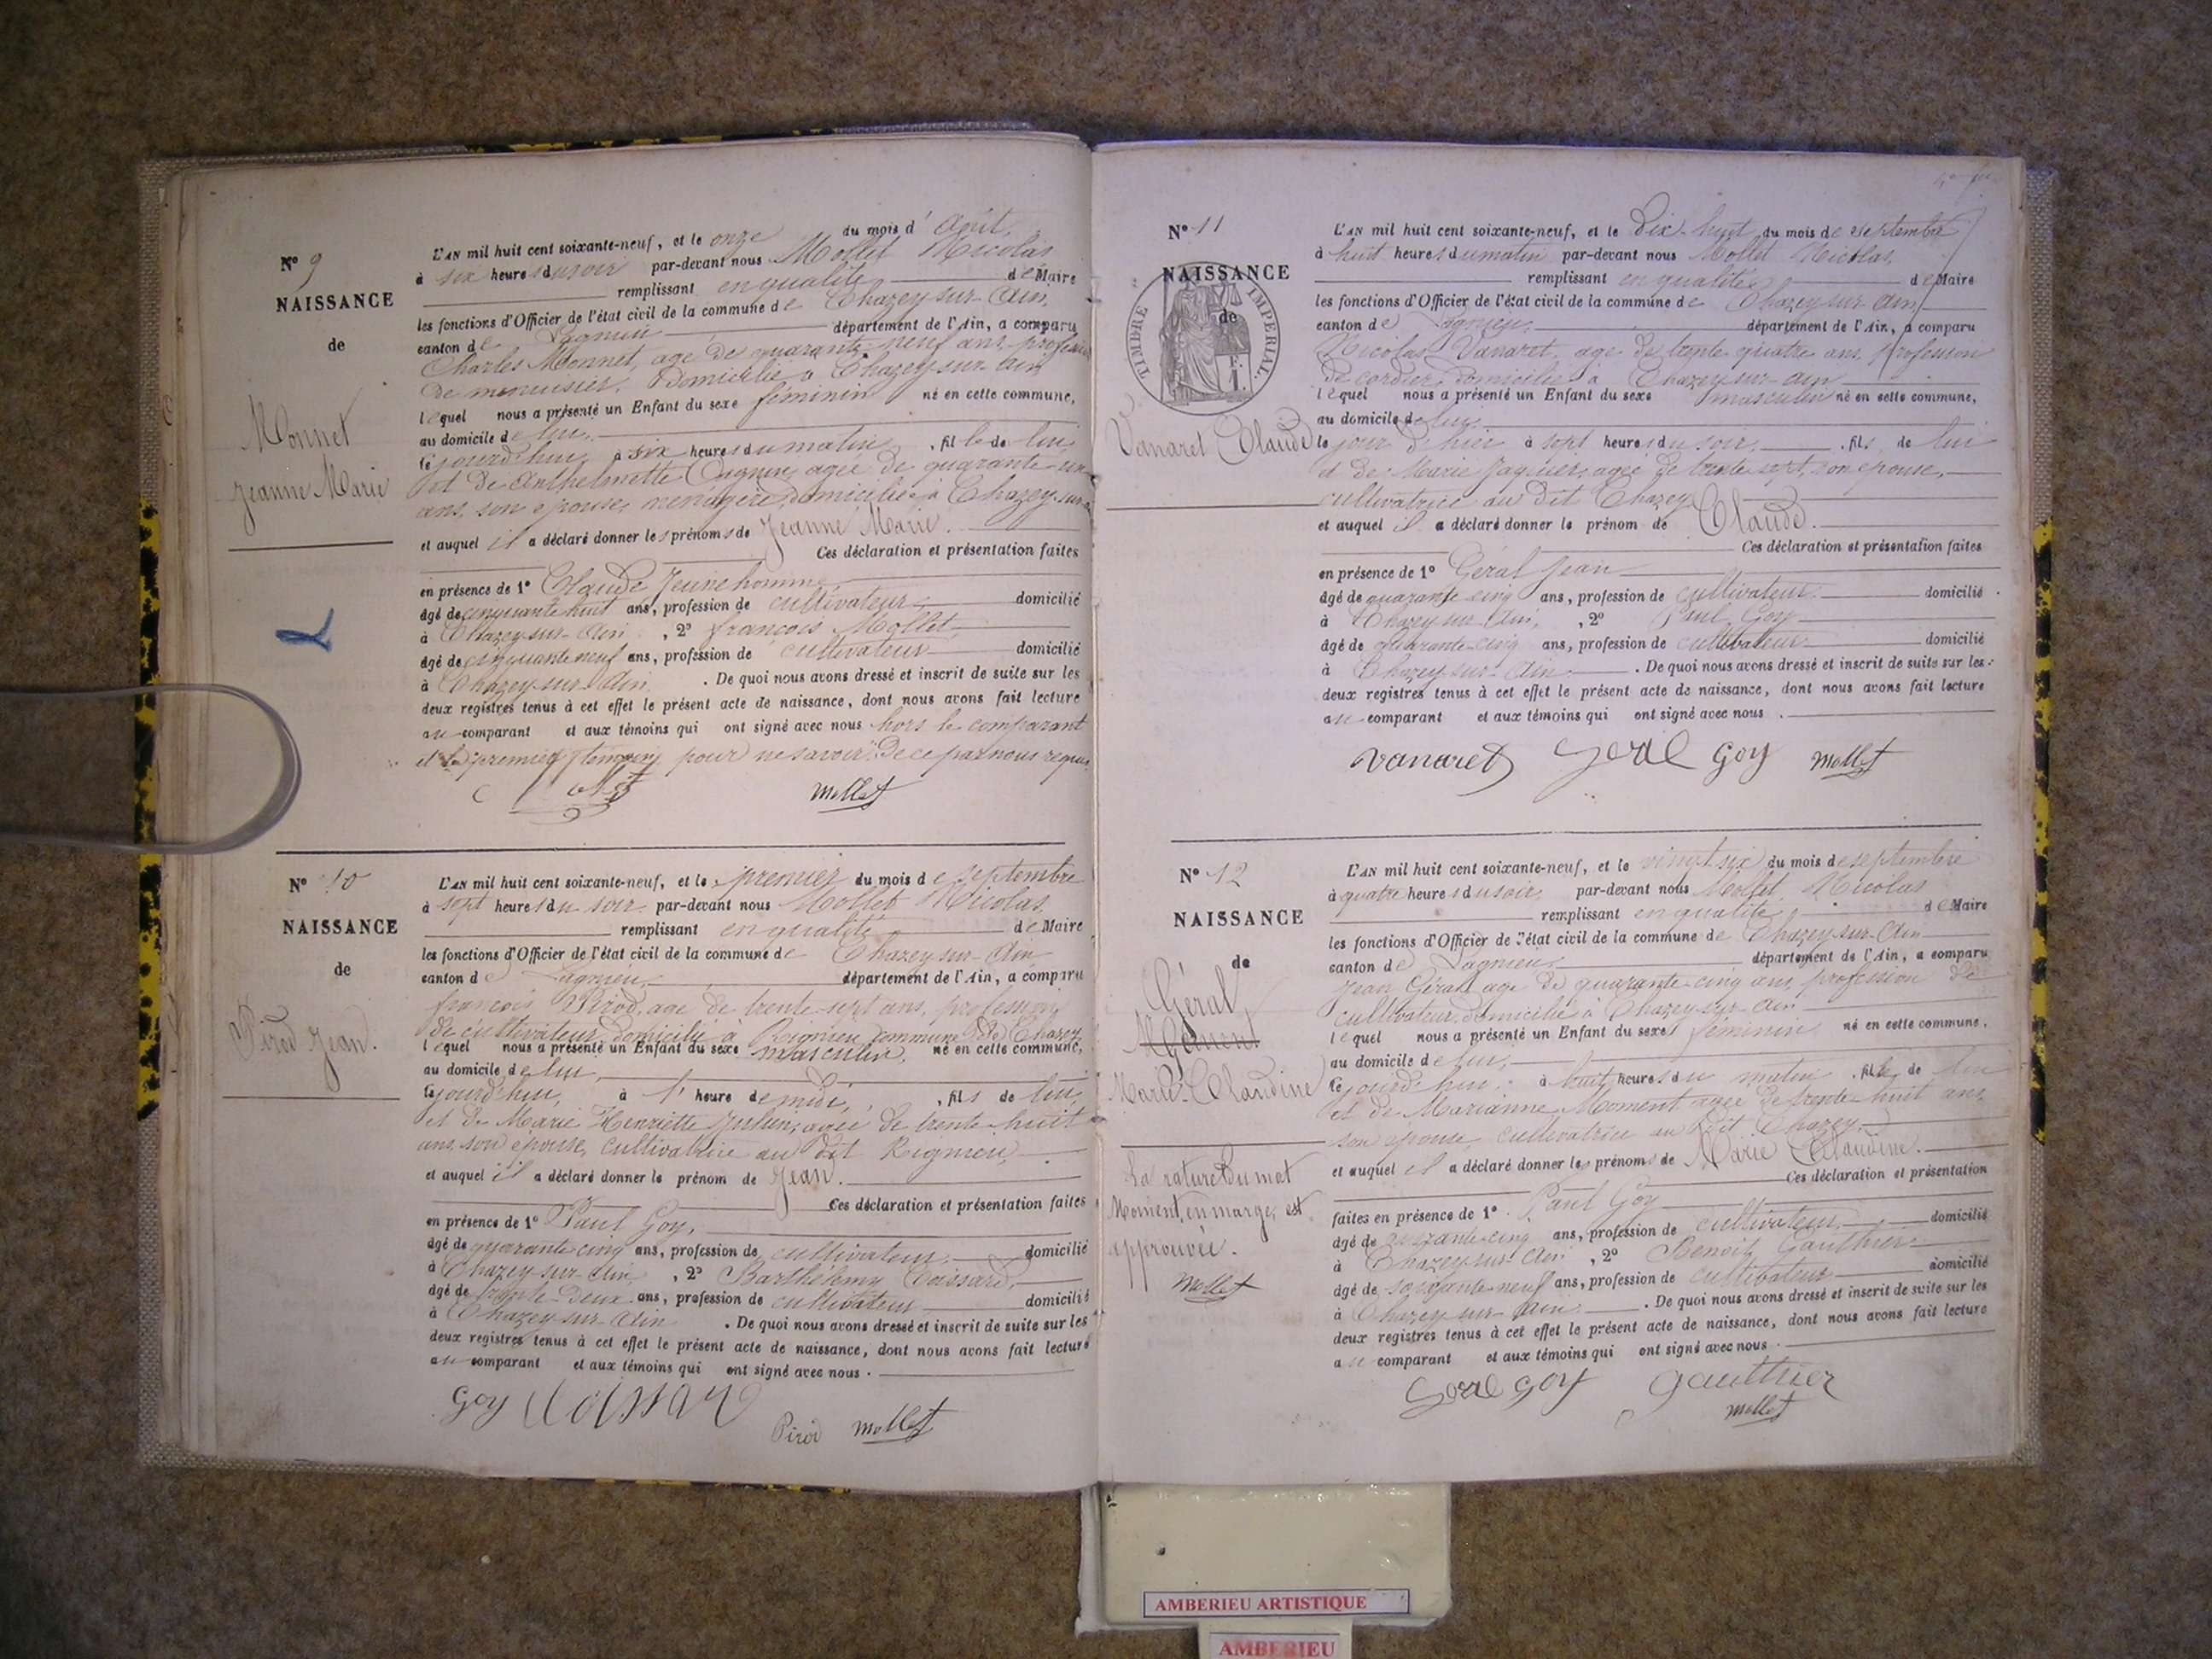 N° 9
NAISSANCE
de
Monnet
Jeanne Marie
L'AN mil huit cent soixante-neuf, et le onze du mois d'Août,
à six heures du soir par-devant nous Mollet Nicolas
remplissant en qualité de Maire
les fonctions d'Officier de l'état civil de la commune de Chazey-sur-Ain,
canton de Lagnieu département de l'Ain, a comparu
Charles Monnet, age de quarante-neuf ans, profession
de menuisier, domicilié à Chazey-sur-Ain
lequel nous a présenté un Enfant du sexe féminin né en cette commune,
au domicile de lui,
le jourd'hui, à six heures du matin, fille de lui,
et de Anthelmette agée de quarante-un
ans, son épouse, ménagère, domiciliée à Chazey-sur-
et auquel il a déclaré donner les prénoms de Jeanne Marie.
Ces déclaration et présentation faites
en présence de 1° Claude Jeunehomme,
âgé de cinquante huit ans, profession de cultivateur domicilié
à Chazey-sur-Ain, 2° françois Mollet,
âgé de cinquante neuf ans, profession de cultivateur domicilié
à Chazey-sur-Ain. De quoi nous avons dressé et inscrit de suite sur les
deux registres tenus à cet effet le présent acte de naissance, dont nous avons fait lecture
au comparant et aux témoins qui ont signé avec nous hors le comparant
et le premier témoin pour ne savoir, de ce par nous requis
Mollet
N° 10
NAISSANCE
de
Pirod Jean.
L'AN mil huit cent soixante-neuf, et le premier du mois de septembre
à sept heures du soir par-devant nous Mollet Nicolas
remplissant en qualité de Maire
les fonctions d'Officier de l'état civil de la commune de Chazey-sur-Ain
canton de Lagnieu, département de l'Ain, a comparu
françois Pirod, age de trente-sept ans, profession
de cultivateur domicilié à Rignieu commune de Chazey
lequel nous a présenté un Enfant du sexe masculin, né en cette commune,
au domicile de lui,
le jourd'hui, à l'heure de midi, fils de lui,
et de Marie Henriette Julien, agée de trente-huit
ans, son épouse, cultivatrice au dit Rignieu,
et auquel il a déclaré donner le prénom de Jean.
Ces déclaration et présentation faites
en présence de 1° Paul Goy,
âgé de quarante-cinq ans, profession de cultivateur domicilié
à Chazey-sur-Ain, 2° Barthélemy Coissard,
âgé de trente-deux ans, profession de cultivateur domicilié
à Chazey-sur-Ain. De quoi nous avons dressé et inscrit de suite sur les
deux registres tenus à cet effet le présent acte de naissance, dont nous avons fait lecture
au comparant et aux témoins qui ont signé avec nous.
Goy Coissard Pirod Mollet
N° 11
NAISSANCE
de
TIMBRE IMPERIAL.
1 F.
Vanaret Claude
L'AN mil huit cent soixante-neuf, et le Dix-huit du mois de septembre
à huit heures du matin par-devant nous Mollet Nicolas,
remplissant en qualité de Maire
les fonctions d'Officier de l'état civil de la commune de Chazey-sur-Ain,
canton de Lagnieu, département de l'Ain, a comparu
Nicolas Vanaret, age de trente quatre ans, profession
de cordier domicilié à Chazey-sur-Ain
lequel nous a présenté un Enfant du sexe masculin né en cette commune,
au domicile de lui,
le jour d'hier à sept heures du soir, fils de lui
et de Marie Jaquier, agée de trente sept, son épouse,
cultivatrice au dit Chazey
et auquel il a déclaré donner le prénom de Claude.
Ces déclaration et présentation faites
en présence de 1° Géral Jean
âgé de quarante cinq ans, profession de cultivateur domicilié
à Chazey-sur-Ain, 2° Paul Goy
âgé de quarante-cinq ans, profession de cultivateur domicilié
à Chazey-sur-Ain. De quoi nous avons dressé et inscrit de suite sur les
deux registres tenus à cet effet le présent acte de naissance, dont nous avons fait lecture
au comparant et aux témoins qui ont signé avec nous.
Vanaret Geral Goy Mollet
N° 12
NAISSANCE
de
Géral
Moment
Marie-Claudine
La rature du mot
Moment, en marge, est
approuvée.
Mollet
L'AN mil huit cent soixante-neuf, et le vingt six du mois de septembre
à quatre heures du soir par-devant nous Mollet Nicolas
remplissant en qualité de Maire
les fonctions d'Officier de l'état civil de la commune de Chazey-sur-Ain
canton de Lagnieu, département de l'Ain, a comparu
Jean Géral, age de quarante-cinq ans, profession de
cultivateur domicilié à Chazey-sur-Ain
lequel nous a présenté un Enfant du sexe féminin né en cette commune,
au domicile de lui,
le jourd'hui, à huit heures du matin, fille de lui
et de Marianne Moment agée de trente-huit ans,
son épouse, cultivatrice au dit Chazey.
et auquel il a déclaré donner les prénoms de Marie Claudine.
Ces déclaration et présentation
faites en présence de 1° Paul Goy
âgé de ans, profession de cultivateur domicilié
à Chazey-sur-Ain, 2° Benoit Gauthier
âgé de soixante-neuf ans, profession de cultivateur domicilié
à Chazey-sur-Ain. De quoi nous avons dressé et inscrit de suite sur les
deux registres tenus à cet effet le présent acte de naissance, dont nous avons fait lecture
au comparant et aux témoins qui ont signé avec nous.
Geral Goy Gauthier
Mollet
AMBERIEU ARTISTIQUE
AMBERIEU